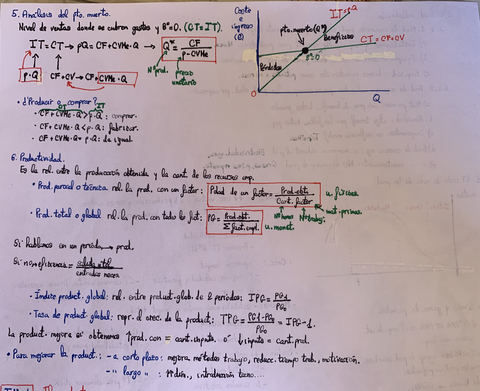 5. Análisis del pto. muerto.
Nivel de ventas donde se cubren gastos y Bº=0. (CT=IT).
IT=CT → pQ = CF+CVMe·Q → Q* = CF / p-CVMe
p·Q CF+CV → CF+CVMe·Q
Nºprod. precio unitario
Coste o ingreso (€)
IT=p·Q
Beneficios
pto.muerto (Q*)
CT=CF+CV
Bº=0
Pérdidas
0
Q
• ¿Producir o comprar?
CT IT
· CF+CVMe·Q > p·Q: comprar.
· CF+CVMe·Q < p·Q: fabricar.
· CF+CVMe·Q = p·Q: da igual.
6. Productividad.
Es la rel. entre la producción obtenida y la cant. de los recursos emp.
• Prod. parcial o técnica: rel. la prod. con un factor: Pdad de un factor = Prod. obt. / Cant. factor
u. físicas
nºhoras Nºtrabaj. mat. primas
• Prod. total o global: rel. la prod. con todos los fact: PG = Prod. obt. / Σ fact. empl.
u. monet.
Si hablamos en un período → prod.
Si no → eficiencia = salida útil / entradas neces.
• Índice product. global: rel. entre product. glob. de 2 períodos: IPG = PG1 / PG0
• Tasa de product. global: repr. el crec. de la product: TPG = PG1-PG0 / PG0 = IPG-1.
La product. mejora si obtenemos ↑prod. con = cant. inputs. o ↓inputs = cant. prod.
• Para mejorar la product: - a corto plazo: mejora métodos trabajo, reducc. tiempo trab., motivación.
- " largo ": introducción tecno....